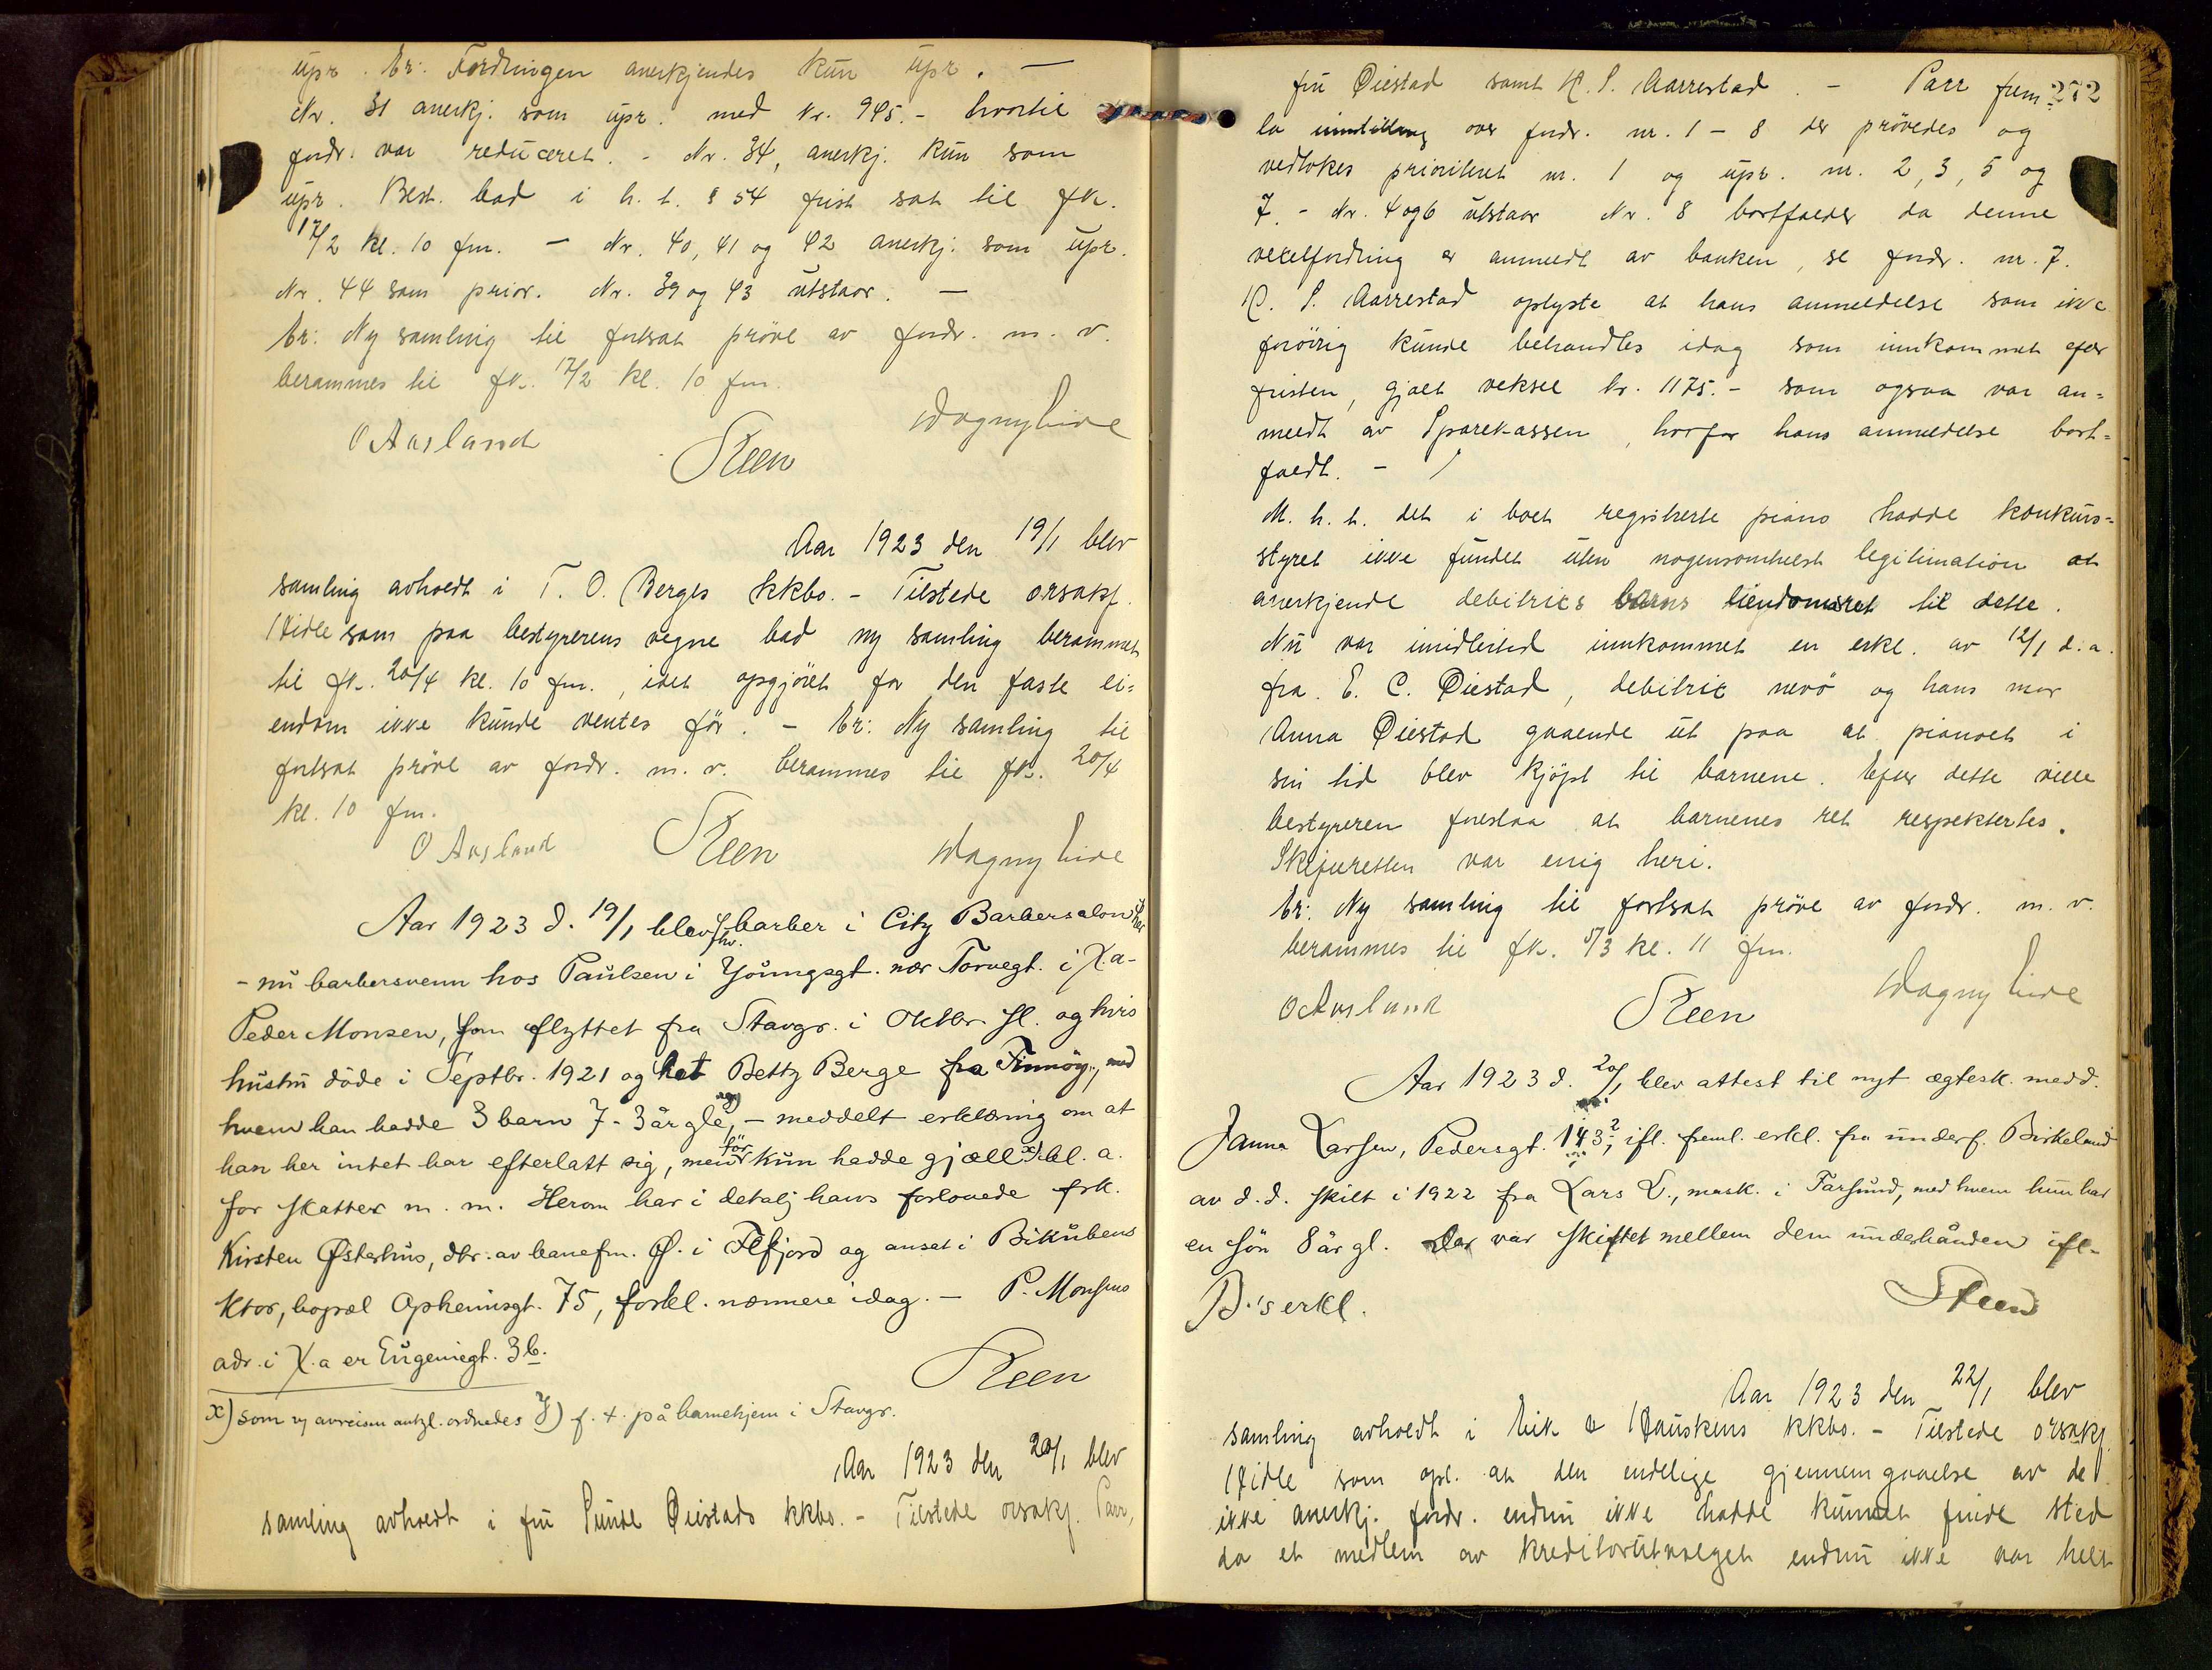 upr. Er: Fordringen anerkjendes kun upr. —
Nr. 31 anerkj. som upr. med kr. 945.- hvortil
fordr. var reduceret. - Nr. 34, anerkj. kun som
upr. Best. bad i h. t. § 54 frist sat til fk.
17/2 kl. 10 fm. — Nr. 40, 41 og 42 anerkj. som upr.
Nr. 44 som prior. Nr. 39 og 43 utstaar. —
Er: Ny samling til fortsat prøve av fordr. m. v.
berammes til fk. 17/2 kl. 10 fm.
O Aasland Steen Dagny Lide
Aar 1923 den 19/1 blev
samling avholdt i T. O. Berges kkbo. - Tilstede orsakf.
Hidle som paa bestyrerens vegne bad ny samling berammet
til fk. 20/4 kl. 10 fm., idet opgjöret for den faste ei=
endom ikke kunde ventes för. - Er: Ny samling til
fortsat prøve av fordr. m. v. berammes til fk. 20/4
kl. 10 fm.
O Aasland Steen Dagny Lide
Aar 1923 d. 19/1 blev fhv. barber i City Barbersalon her
- nu barbersvenn hos Paulsen i Youngsgt. nær Torvegt. i X.a -
Peder Monsen, som flyttet fra Stavgr. i Oktbr. fl. og hvis
hustru döde i Septbr. 1921 og het Betty Berge fra Finnöy, med
hvem han hadde 3 barn 7-3 år gle y), - meddelt erklæring om at
han her intet har efterlatt sig, men för kun hadde gjæll x) bl. a.
for skatter m. m. Herom har i detalj hans forlovede frk.
Kirsten Østerhus, dtr. av banefm. Ø. i Flfjord og ansat i Bikubens
ktor, bopæl Opheimsgt. 75, forkl. nærmere idag. — P. Monsens
adr. i X.a er Eugeniegt. 3 b.
Steen
x) som v/ avreisen ordnedes y) f. t. på barnehjem i Stavgr.
Aar 1923 den 20/1 blev
samling avholdt i fru Sunde Øiestads kkbo. - Tilstede orsakf. Parr,
272
fru Øiestad samt K. S. Aarrestad. - Parr frem=
la innstilling over fordr. nr. 1 - 8 der prøvedes og
vedtokes prioritert nr. 1 og upr. nr. 2, 3, 5 og
7. - Nr. 4 og 6 utstaar Nr. 8 bortfalder da denne
vekselfordring er anmeldt av banken, se fordr. nr. 7.
K. S. Aarrestad oplyste at hans anmeldelse som ikke
forövrig kunde behandles idag som innkommet efter
fristen, gjalt veksel kr. 1175.- som ogsaa var an=
meldt av Sparekassen, hvorfor hans anmeldelse bort=
faldt. -
M. h. t. det i boet registrerte piano hadde konkurs=
styret ikke fundet uten nogensomhelst legitimation at
anerkjende debitrices barns eiendomsret til dette.
Nu var imidlertid innkommet en erkl. av 12/1 d. a.
fra E. C. Øiestad, debitric nevö og hans mor
Anna Øiestad gaaende ut paa at pianoet i
sin tid blev kjöpt til barnene. Efter dette ville
bestyreren foreslaa at barnenes ret respektertes.
Skifteretten var enig heri.
Er: Ny samling til fortsat prøve av fordr. m. v.
berammes til fk. 5/3 kl. 11 fm.
O Aasland Steen Dagny Lide
Aar 1923 d. 20/1 blev attest til nyt ægtesk. medd.
Janna Larsen, Pedersgt. 143², ifl. freml. erkl. fra underf. Birkeland
av d. d. skilt i 1922 fra Lars L., mask. i Farsund, med hvem hun har
en sön 8 år gl. Der var skiftet mellem dem underhånden ifl.
B.'s erkl. Steen
Aar 1923 den 22/1 blev
samling avholdt i Eik & Hauskens kkbo. - Tilstede orsakf.
Hidle som opl. at den endelige gjennemgaaelse av de
ikke anerkj. fordr. endnu ikke hadde kunnet finde sted
da et medlem av kreditorutvalget endnu ikke var helt